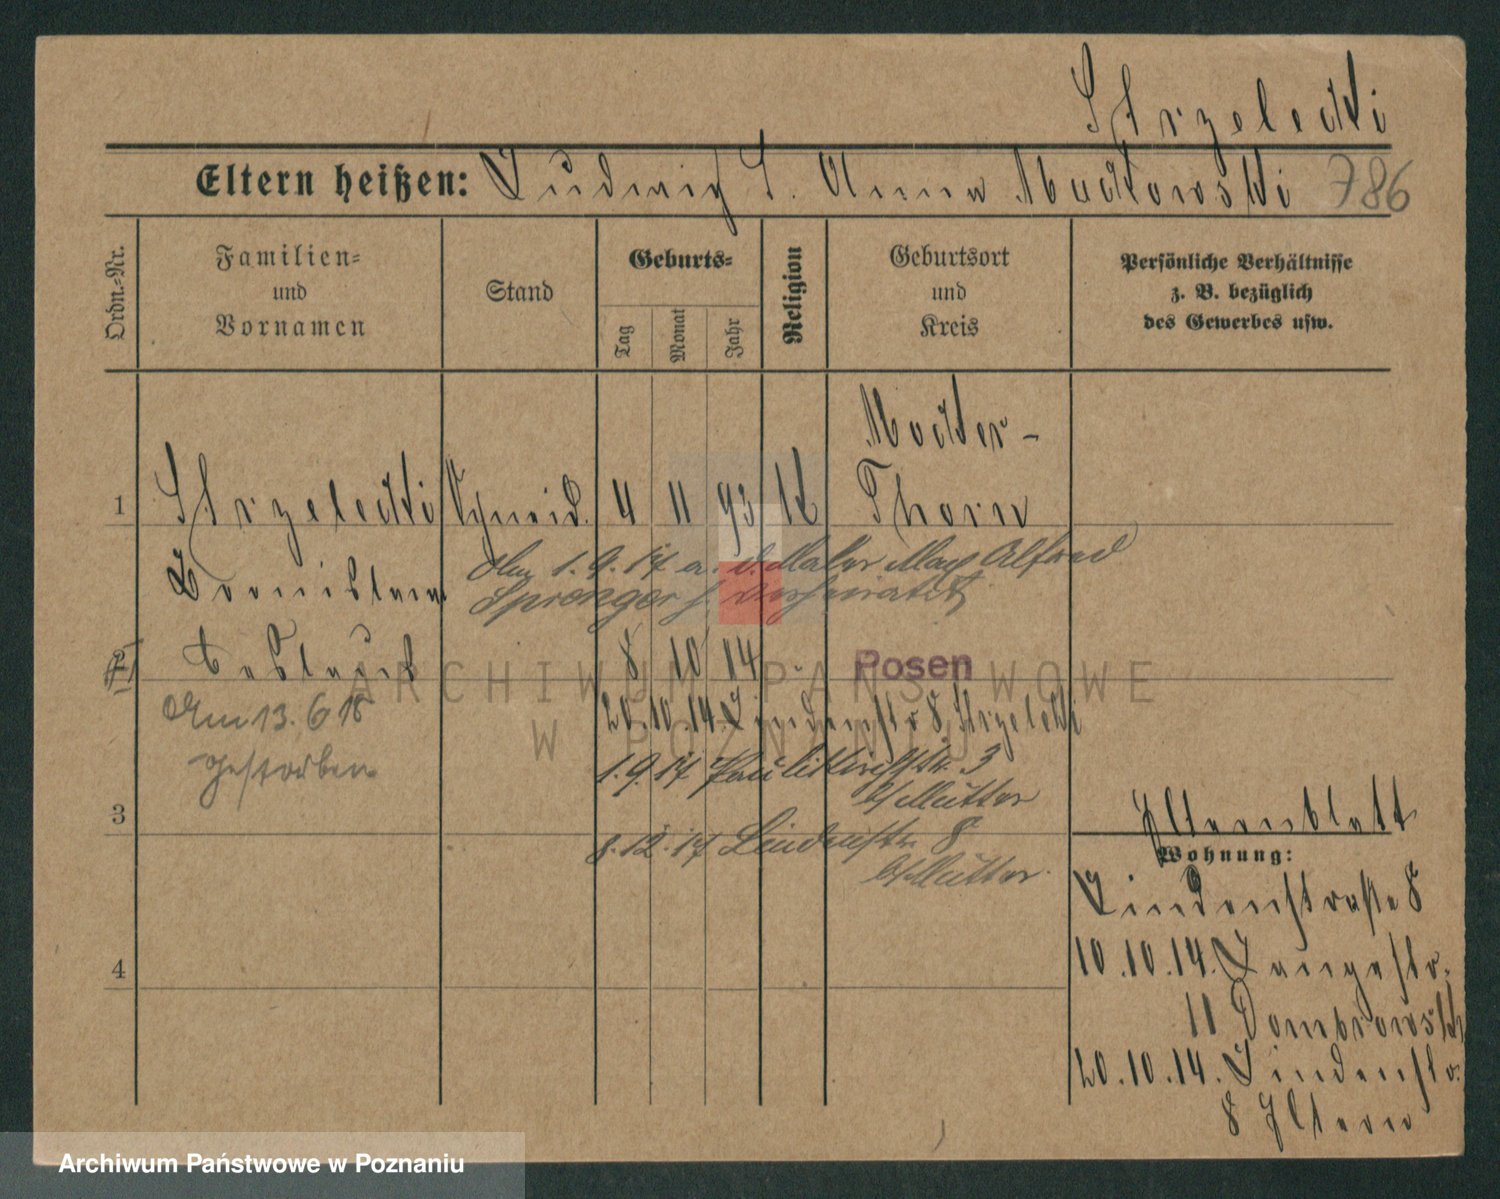 Strzelecki
Eltern heißen: Ludwig S. Anna Maćkowski 786
Ordn.-Nr.
Familien-
und
Vornamen
Stand
Geburts-
Tag
Monat
Jahr
Religion
Geburtsort
und
Kreis
Persönliche Verhältnisse
z. B. bezüglich
des Gewerbes usw.
Mocker-
1 Strzelecki Schneid. 4 11 93 K Thorn
Am 1.9.17 a. d. Maler Max Alfred
Sprenger verheiratet
2 8 10 14 Posen
ARCHIWUM PAŃSTWOWE
W POZNANIU
Am 13.6 18
gestorben
20.10.14. Lindenstr 8 Strzelecki
1.9.17 Paulikirchstr. 3
b/ Mutter
3
8.12.17 Lindenstr. 8
b/ Mutter
4
Elternblatt
Wohnung:
Lindenstraße 8
10.10.14. Langestr.
11 Dombrowski
20.10.14. Lindenstr.
8 Eltern
Archiwum Państwowe w Poznaniu